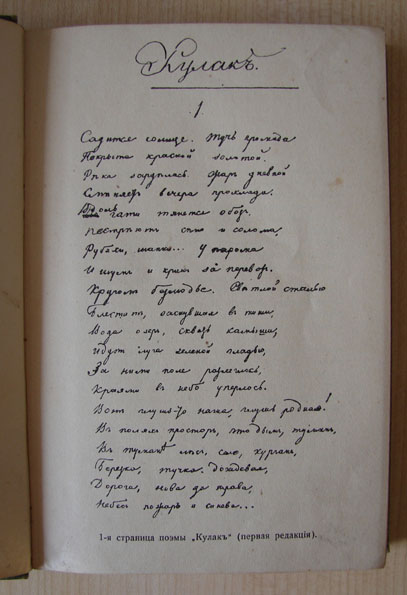 Кулакъ.
1.
Садится солнце. Тучъ громада
Покрыта краской золотой.
Рѣка зардѣлась. Жаръ дневной
Смѣняетъ вечера прохлада.
Вдоль гати тянется обозъ,
Пестрѣютъ сѣно и солома,
Рубахи, шапки... У парома
И шумъ и крикъ за перевозъ.
Кругомъ безлюдье. Свѣтлой сталью
Блеститъ, заснувшая въ тиши,
Вода озеръ, сквозь камыши,
Идутъ луга зеленой гладью,
За ними поле разлеглось,
Краями въ небо уперлось.
Вотъ глушь-то наша, глушь родная!
Въ поляхъ просторъ, что дымъ, туманъ,
Въ туманѣ лѣсъ, село, курганъ,
Березка, тучка дождевая,
Дорога, нова да трава,
Небесъ пожаръ и синева...
1-я страница поэмы „Кулакъ“ (первая редакція).